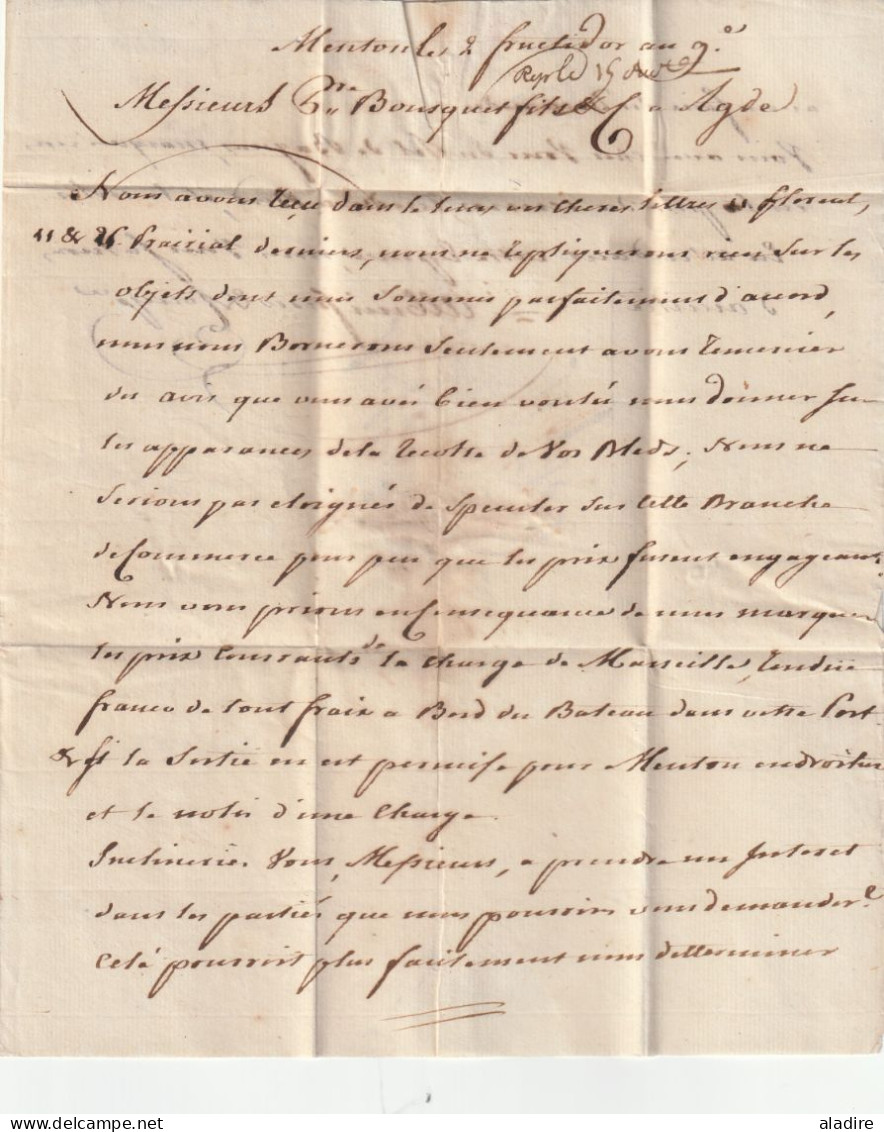 Menton les 2 fructidor an 9e
Rep le 15 dud
Messieurs Bousquet fils & C a Agde
Nous avons reçu dans le tems vos cheres lettres floreal,
11 & 26 Prairial derniers, nous ne repliquerons rien sur les
objets dont nous sommes parfaitement d'acord,
nous nous Bornerons seulement a vous remercier
des avis que vous avés bien voulu nous donner sur
les apparances de la recolte de vos Bleds; Nous ne
serions pas eloignés de speculer sur cette Branche
de Commerce pour peu que les prix fussent engageans.
Nous vous prions en Consequance de nous marquer
les prix Courrants de la charge de Marseille, rendüe
franco de tout fraix a Bord du Bateau dans votre Port
& si la sortie en est permise pour Menton en droiture
et le nolis d'une Charge
Inclineriés Vous, Messieurs, a prendre un Interet
dans les partiés que nous pourrions vous demander?
Celà pourroit plus facilement nous determiner
aladire
delcampe.net